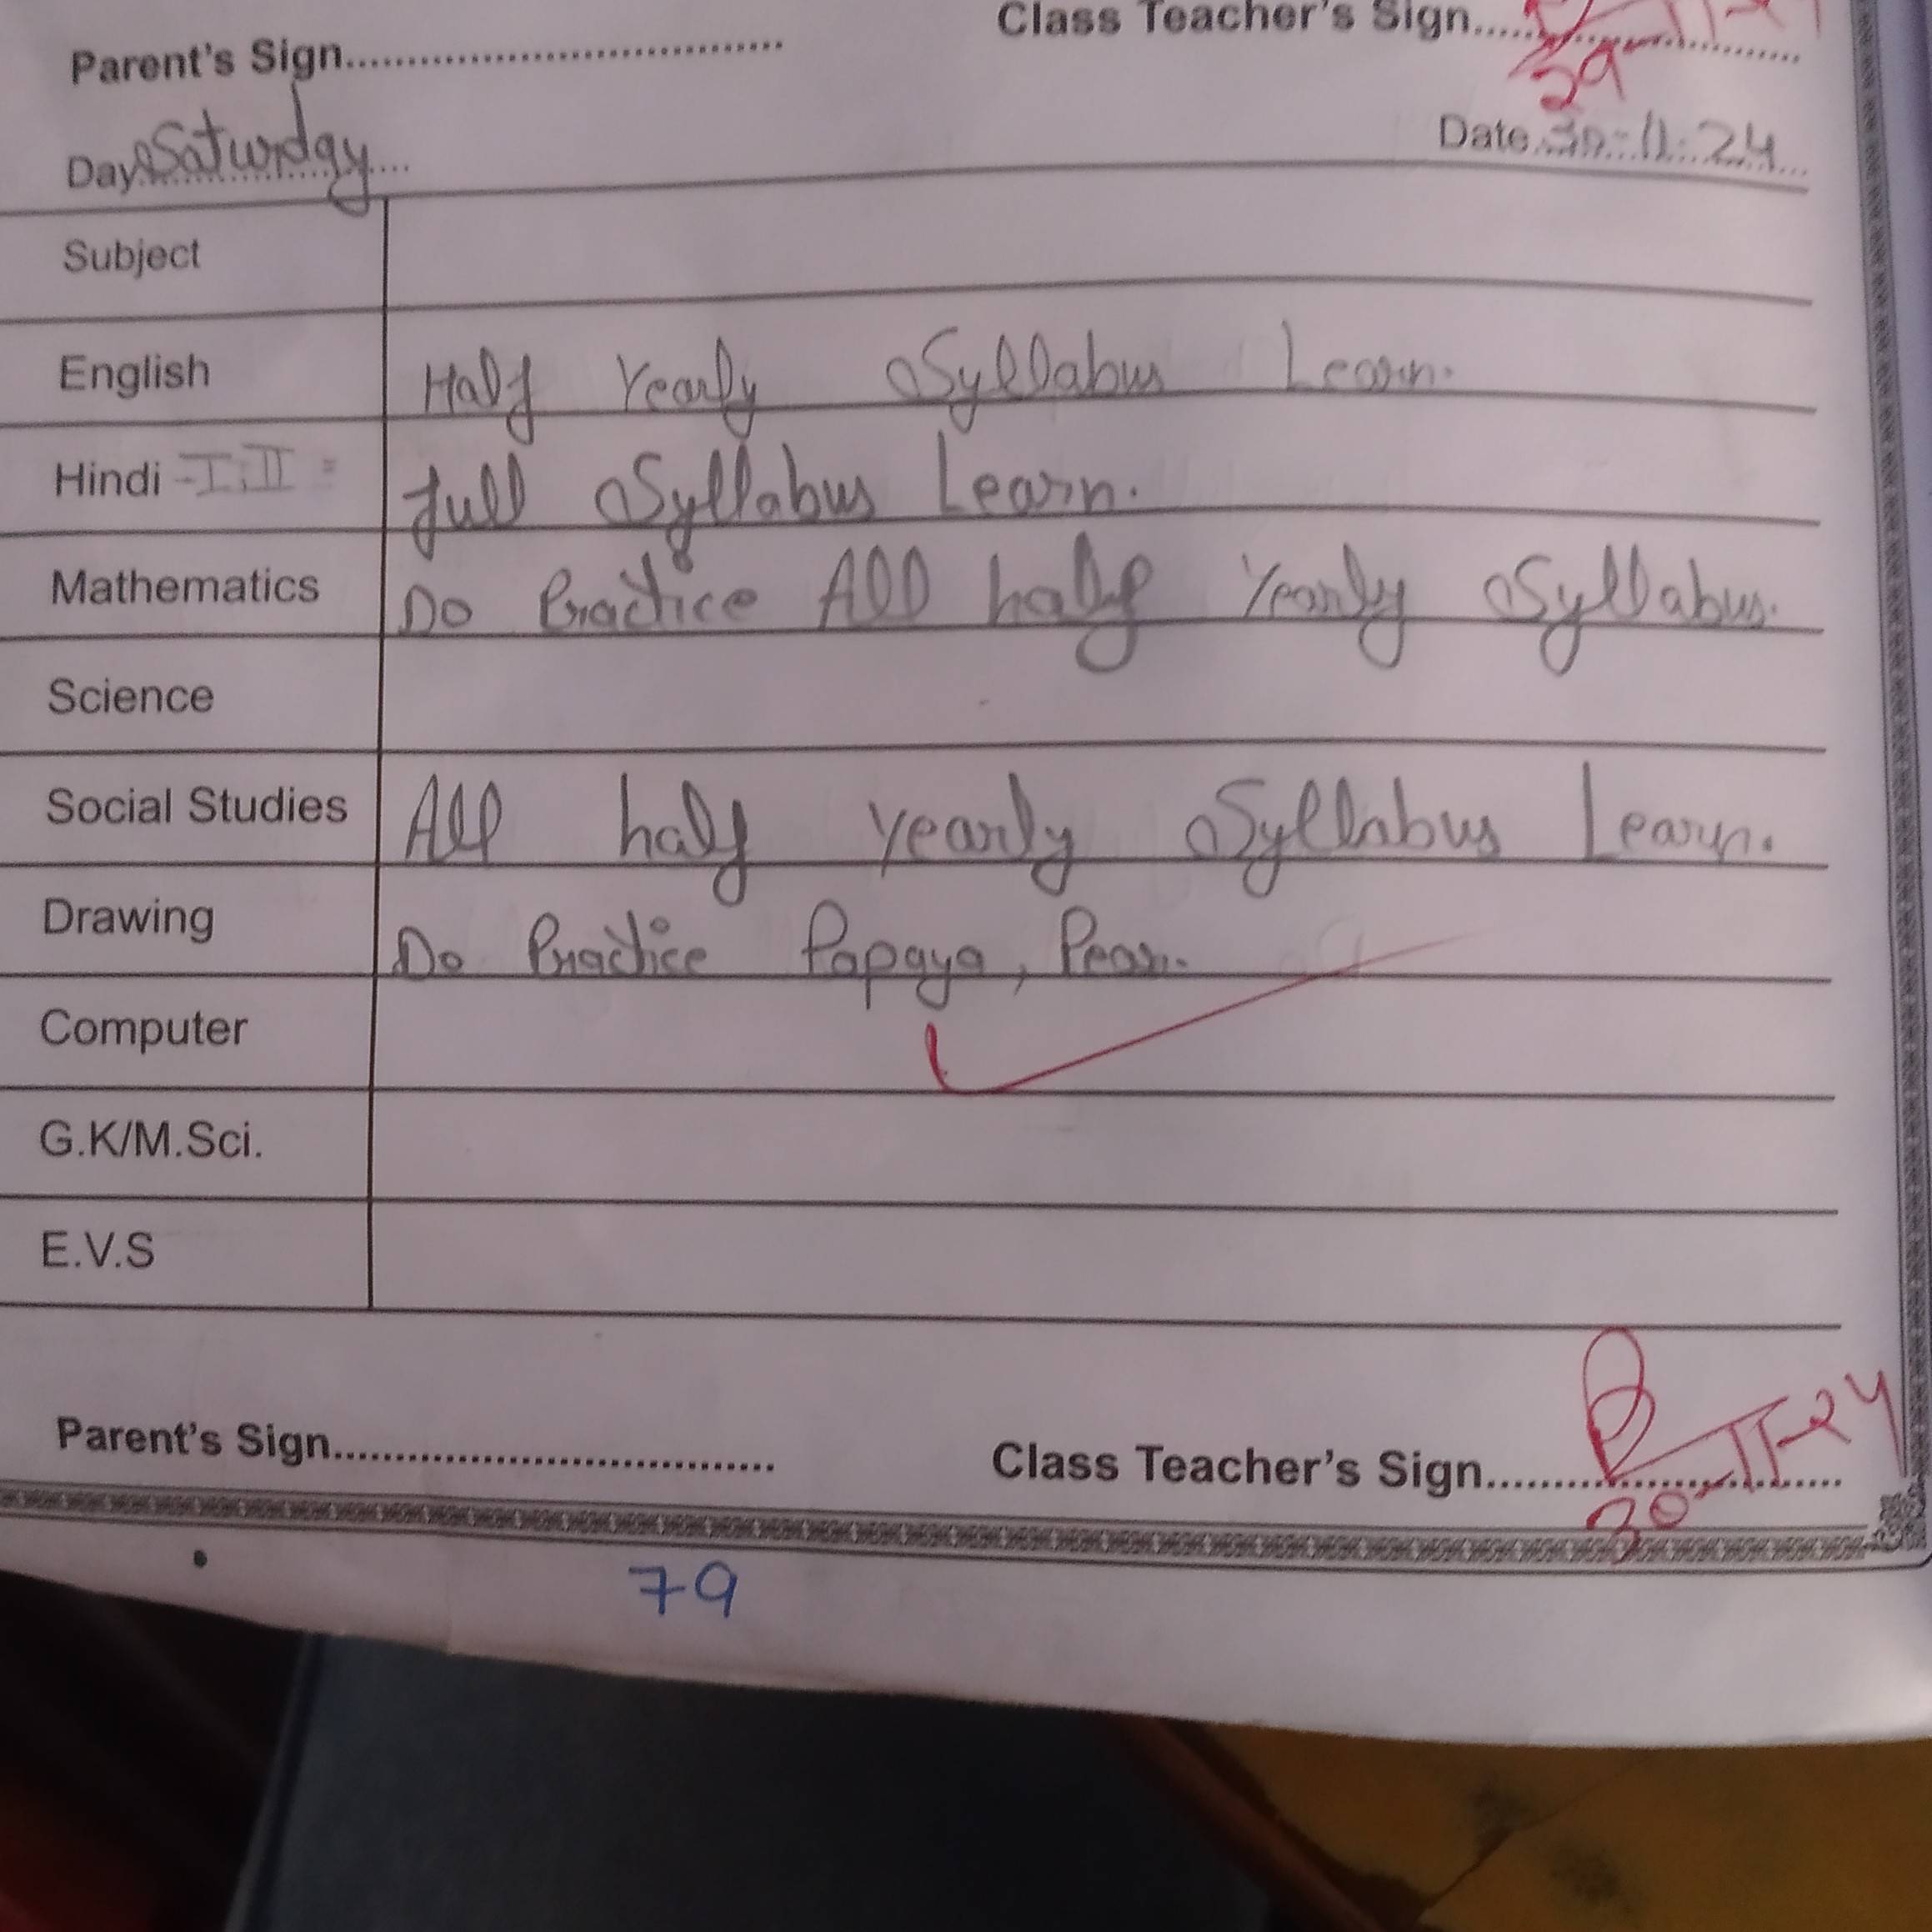 Parent's Sign.................................... Class Teacher's Sign..........................
29
Day Saturday Date 30-11-24
Subject
English Half Yearly Syllabus Learn.
Hindi -I, II = full Syllabus Learn.
Mathematics Do Practice All half Yearly Syllabus.
Science
Social Studies All half yearly Syllabus Learn.
Drawing Do Practice Papaya, Pear.
Computer
G.K/M.Sci.
E.V.S
Parent's Sign.................................... Class Teacher's Sign..........................
30-11-24
79